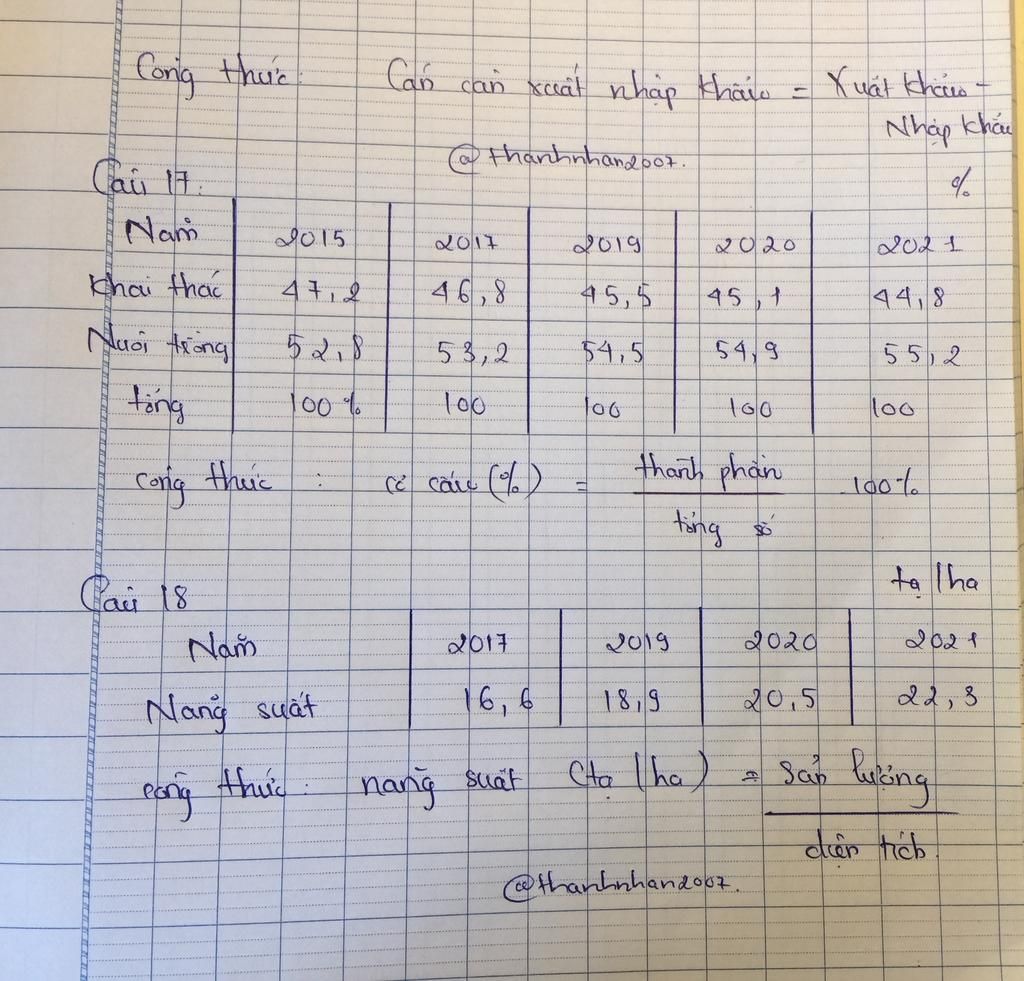 Công thức: Cán cân xuất nhập khẩu = Xuất khẩu -
Nhập khẩu
@thanhnhan2007.
Câu 17: %
Năm 2015 2017 2019 2020 2021
Khai thác 47,2 46,8 45,5 45,1 44,8
Nuôi trồng 52,8 53,2 54,5 54,9 55,2
tổng 100% 100 100 100 100
công thức : cơ cấu (%) = thành phần 100%
tổng số
Câu 18 tạ/ha
Năm 2017 2019 2020 2021
Năng suất 16,6 18,9 20,5 22,3
công thức: năng suất (tạ/ha) = Sản lượng
diện tích.
@thanhnhan2007.